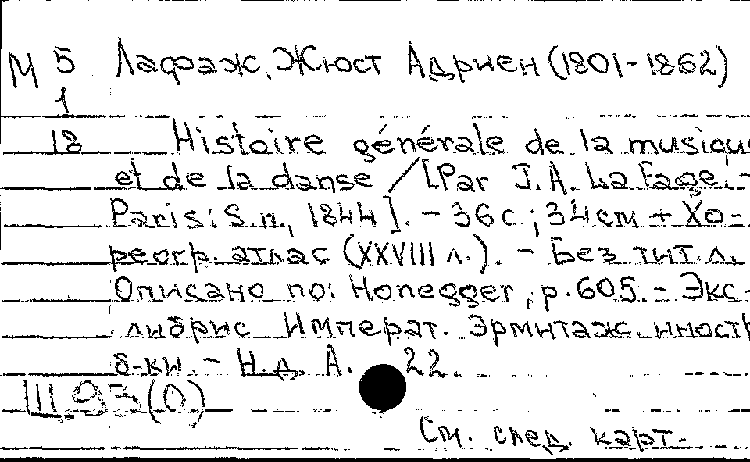 М 5 Лафаж, Жюст Адриен (1801-1862)
1
18 Histoire générale de la musique
et de la danse / [Par J.A. La Fage. -
Paris: S.n., 1844]. - 36 с.; 34 см + Хо-
реогр. атлас (XXVIII л.). - Без тит. л.
Описано по: Honegger, p. 605. - Экс-
либрис Императ. Эрмитаж. иностр.
б-ки. - Н.д. А. 22.
III 93(0)
См. след. карт.